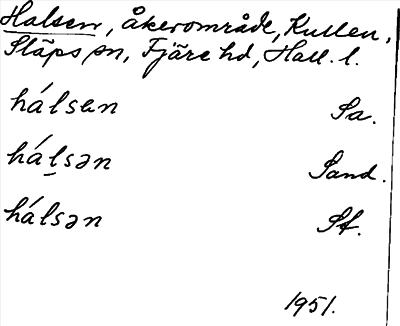 Halsen, åkerområde, Kullen,
Släps sn, Fjäre hd, Hall. l.
hálsen Sa.
hál̠sən Sand.
hálsən St.
1951.